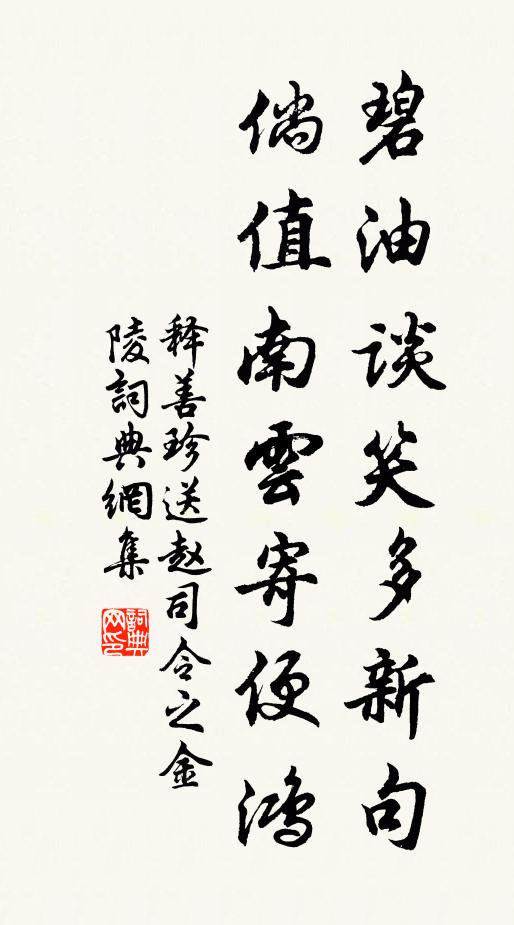 碧油談笑多新句
倘值南雲寄便鴻
释善珍送赵司令之金
陵詞典網集
詞典网印